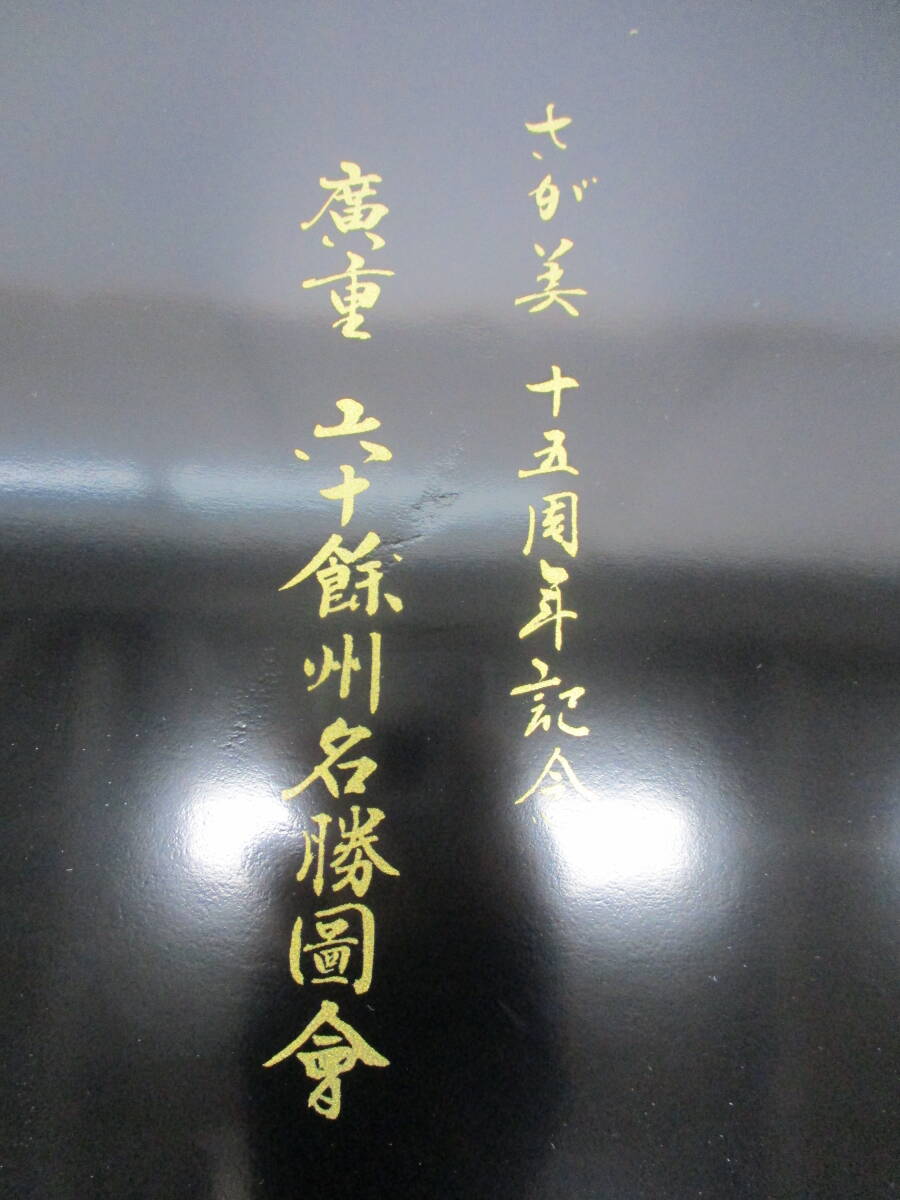 さが美 十五周年記念
廣重 六十餘州名勝圖會